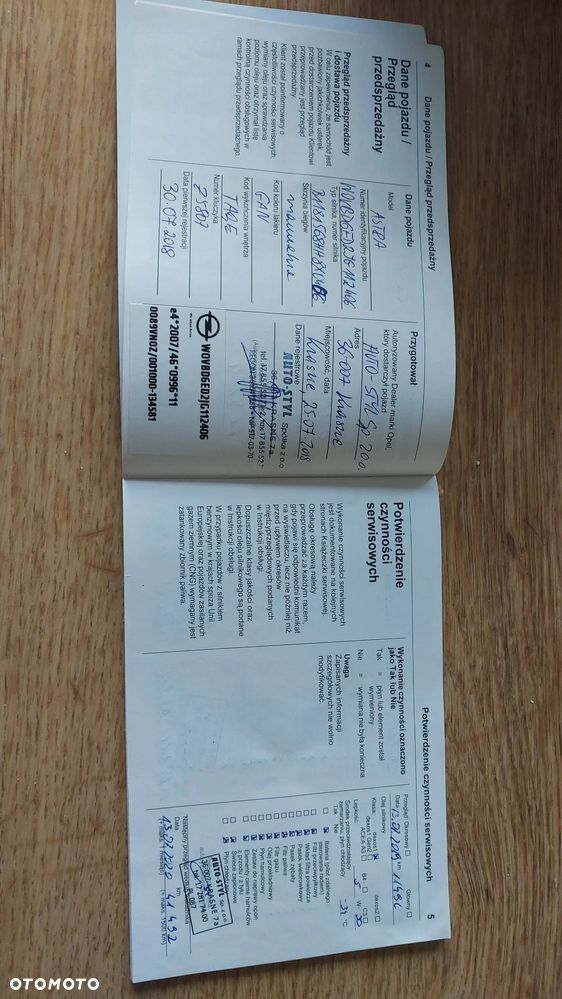 4 Dane pojazdu / Przegląd przedsprzedażny
Dane pojazdu /
Przegląd
przedsprzedażny
Przegląd przedsprzedażny
i dostawa pojazdu
W celu zapewnienia, że samochód jest
pozbawiony jakichkolwiek usterek,
przed dostarczeniem pojazdu Klientowi
przeprowadzany jest przegląd
przedsprzedażny.
Klient został poinformowany o
częstotliwości czynności serwisowych,
wymiany oleju oraz sprawdzania
poziomu oleju oraz otrzymał listę
kontrolną czynności obsługowych w
ramach przeglądu przedsprzedażnego.
Dane pojazdu
Model
ASTRA
Numer identyfikacyjny pojazdu
W0VBD6ED2JG112406
Typ silnika, numer silnika
Skrzynia biegów
manualna
Kod koloru lakieru
GAN
Kod wykończenia wnętrza
TAQE
Numer kluczyka
Z5807
Data pierwszej rejestracji
30.07.2018
Przygotował
Autoryzowany Dealer marki Opel,
który dostarczył pojazd
AUTO-STYL Sp. z o.o.
Adres
36-007 Krasne
Miejscowość, data
Krasne, 25.07.2018
Dane rejestrowe
AUTO-STYL Spółka z o.o.
KRASNE 7a
OPEL
W0VBD6ED2JG112406
e4*2007/46*0996*11
0089VN0Z/001000-194581
Potwierdzenie czynności serwisowych 5
Potwierdzenie
czynności
serwisowych
Wykonanie czynności serwisowych
jest dokumentowane na kolejnych
stronach Książeczki serwisowej.
Obsługę okresową należy
przeprowadzać za każdym razem,
gdy pojawi się odpowiedni komunikat
na wyświetlaczu, lecz nie później niż
przed upływem okresów
międzyprzeglądowych podanych
w Instrukcji obsługi.
Dopuszczalne klasy jakości oraz
lepkości oleju silnikowego są podane
w Instrukcji obsługi.
W przypadku pojazdów z silnikiem
benzynowym w krajach spoza Unii
Europejskiej oraz pojazdów zasilanych
gazem ziemnym (CNG) wymagany jest
zatankowany zbiornik paliwa.
Wykonanie czynności oznaczono
jako Tak lub Nie
Tak = płyn lub element został
wymieniony
Nie = wymiana nie była konieczna
Uwaga
Zapisanych informacji
szczegółowych nie wolno
modyfikować.
Przegląd: Okresowy Główny
Data km
Olej silnikowy
Klasa: dexos1 dexos2
dexos1 Gen2 C3
ACEA A3 B4
Lepkość: 5 W- 30
Środek przeciwdziałający
zamarzaniu, płyn chłodzący -34 °C
Tak Nie
Bateria (pilot zdalnego
sterowania/kluczyk)
Filtr przeciwpyłkowy
Wkład filtra powietrza
Pasek wieloklinowy
Pasek zębaty
Filtr paliwa
Filtr gazu
Olej przekładniowy
Płyn hamulcowy
Zestaw do naprawy opon
Elementy cierne hamulców
z przodu / z tyłu
Świece zapłonowe
Płyn chłodzący
AUTO-STYL Sp. z o.o.
36-007 KRASNE 7a
tel. 17 281 74 00
PL 087
Następny przegląd
Data km
13.07.2020 41 492
(+ maks. 1500 km)
OTOMOTO